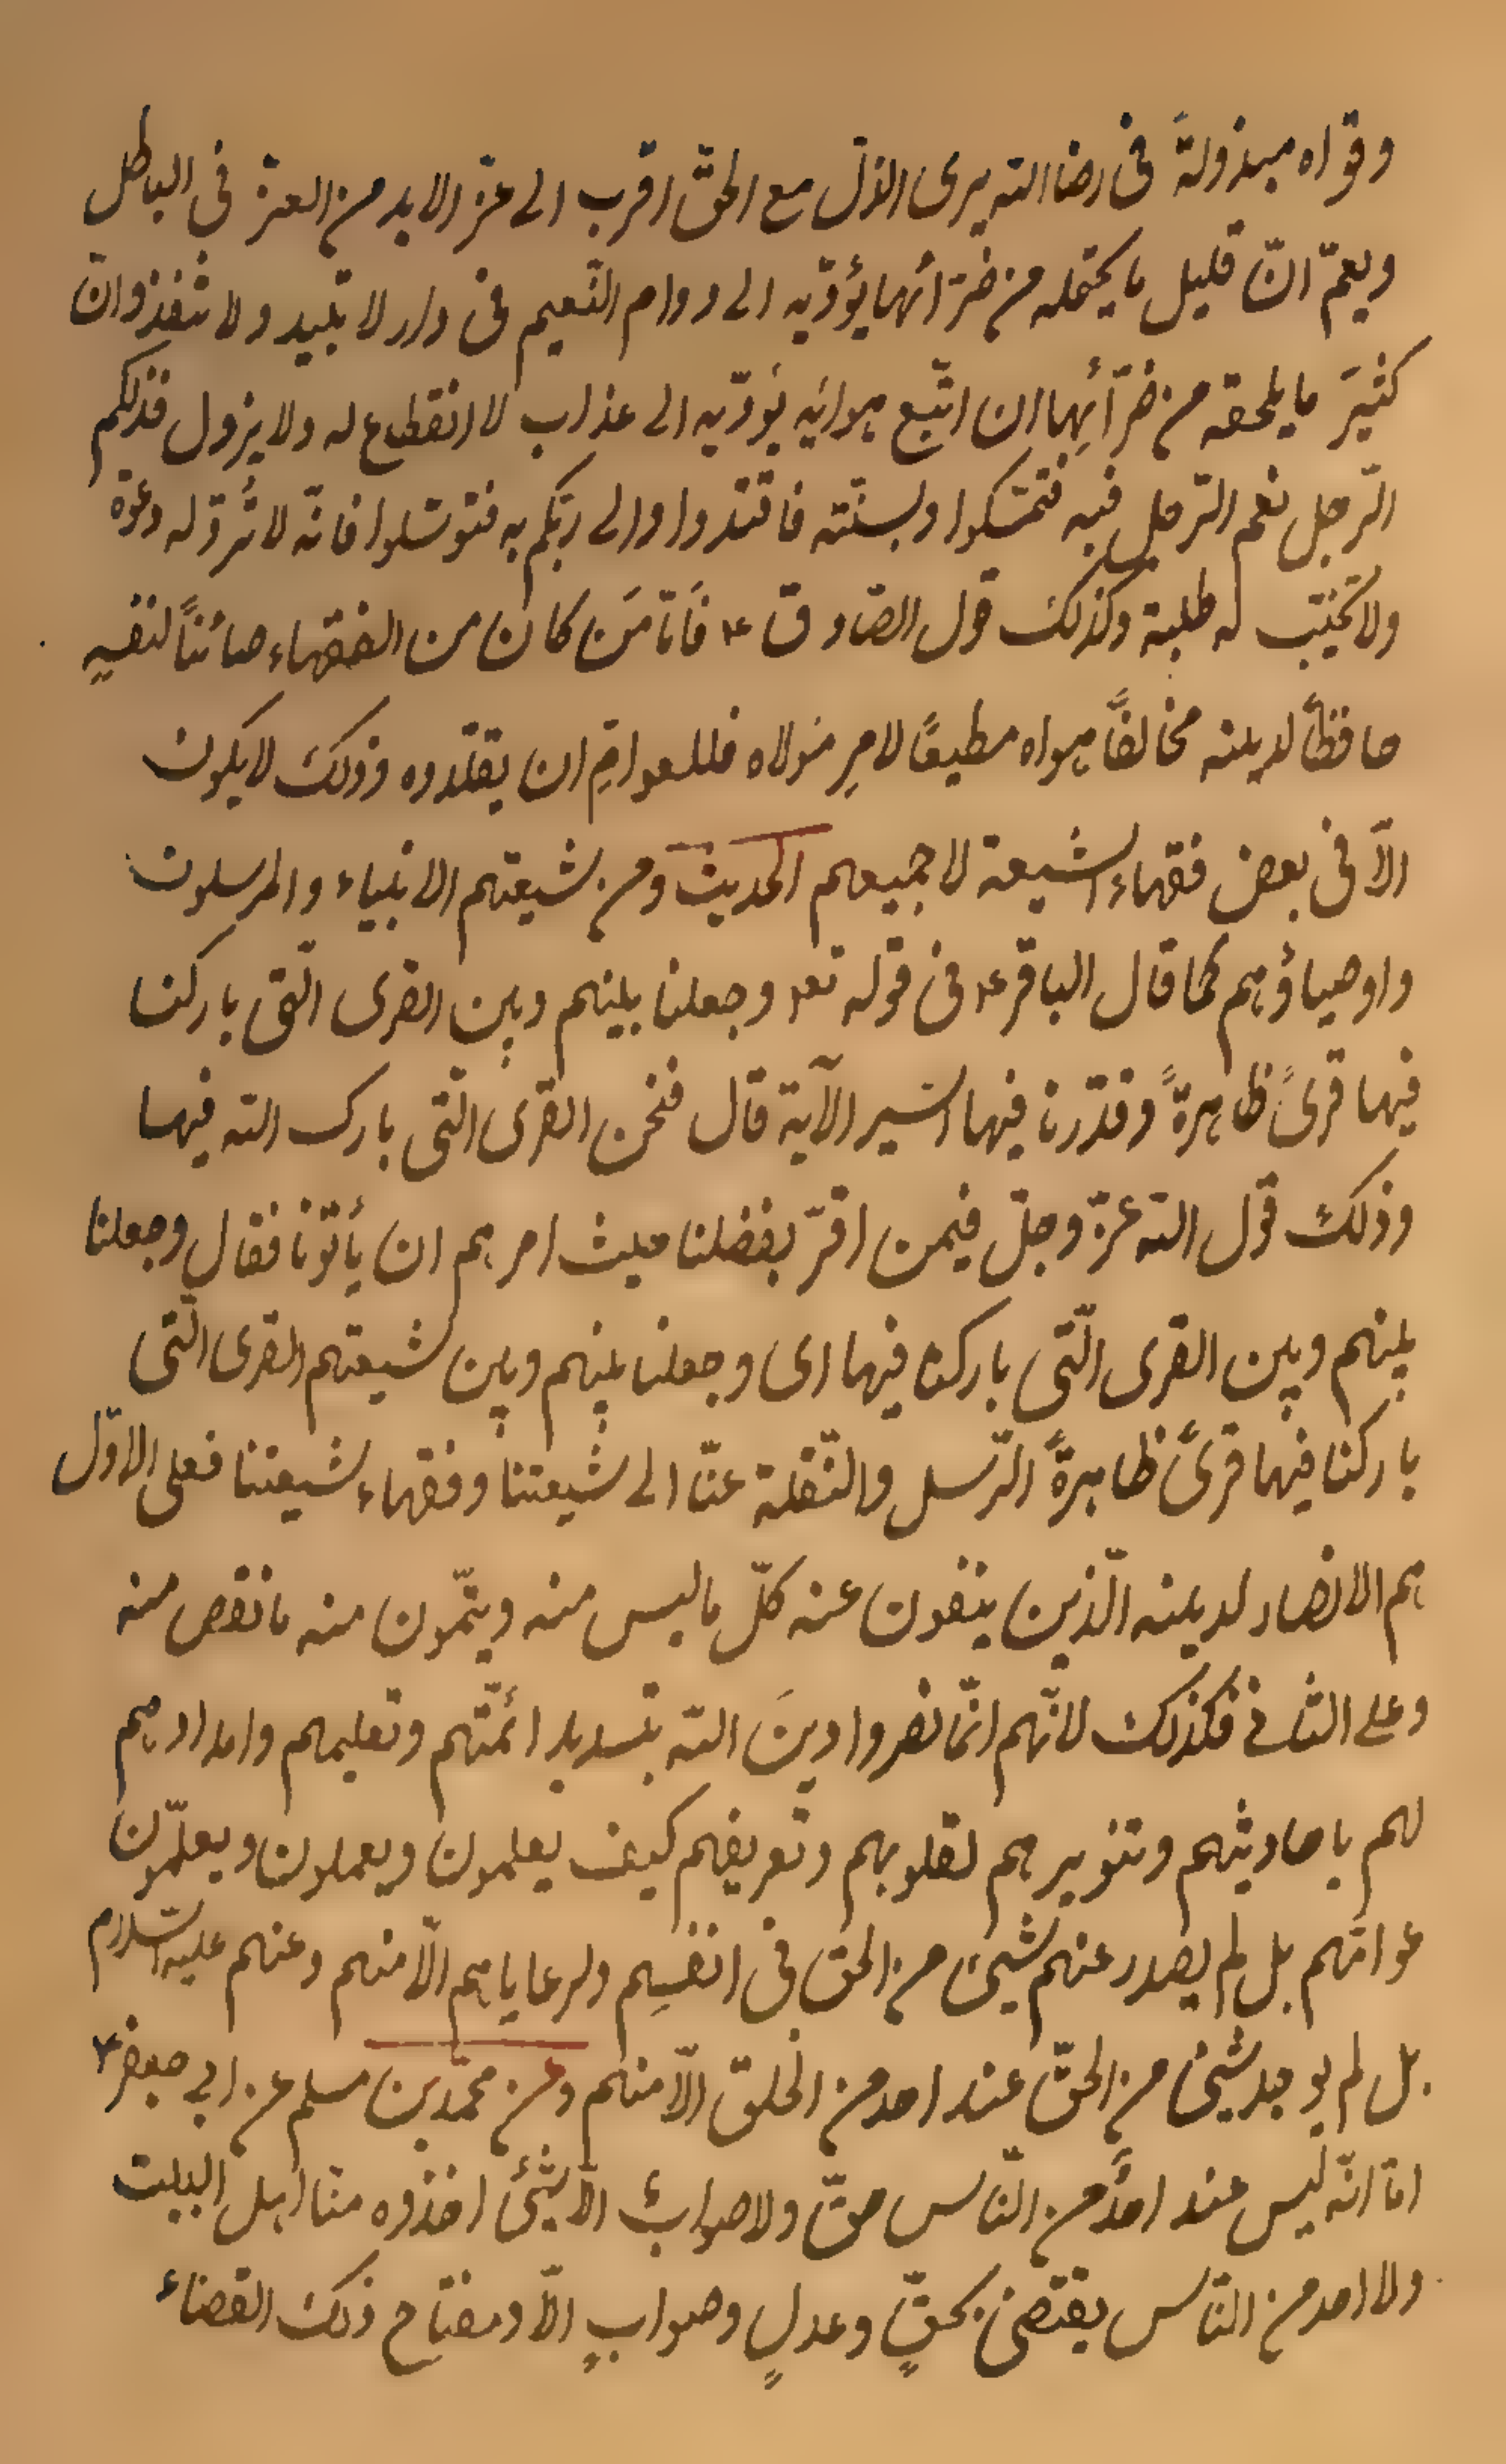 وقواه مبذولةً فى رضا الله يرى الذلّ مع الحقّ اقرب الى عزّ الابد من العزّ فى الباطل
ويعمّ انّ قليل ما يحتمله من ضرّائها يؤدّيه الى دوام النّعيم فى دار لا تبيد ولا تنفذ وانّ
كثيرَ ما يلحقه من ضرّائِها ان اتّبع هوائه يؤدّيه الى عذاب لا انقطاع له ولا يزول فذلكم
الرّجل نعم الرّجل فبه فتمسّكوا وبسنّته فاقتدوا والى ربّكم به فتوسّلوا فانّه لا تُردّ له دعوة
ولا تخيّب له طلبة وكذلك قول الصّادق ع فَامّا مَن كان من الفقهاء صائناً لنفسِهِ
حافظاً لدينه مخالفاً هواه مطيعًا لامرِ مَولاه فللعوامِّ ان يقلّدوه وذلك لا يكون
الّا فى بعض فقهاء الشيعة لا جميعهم الحديث ومن شيعتهم الانبياء والمرسلون
واوصياؤهم كما قال الباقر ع فى قوله تعـ وجعلنا بينهم وبين القرى التى باركنا
فيها قرىً ظاهرةً وقدّرنا فيها السّير الآية قال فنحن القرى الّتى بارك الله فيها
وذلك قول الله عزّ وجلّ فيمن اقرّ بفضلنا حيث امرهم ان يأتونا فقال وجعلنا
بينهم وبين القرى الّتى باركنا فيها اى وجعلنا بينهم وبين شيعتهم القرى الّتى
باركنا فيها قرىً ظاهرةً الرّسل والنّقلة عنّا الى شيعتنا وفقهاء شيعتنا فعلى الاوّل
هم الانصار لدينه الّذين ينفون عنه كلّ ما ليس منه ويتمّون منه ما نقص منه
وعلى الثانى فكذلك لانّهم انّما نصروا دينَ الله بتسديد ائمّتهم وتعليمهم وامدادهم
لهم باحاديثهم وتنويرهم لقلوبهم وتعريفهم كيف يعلمون ويعملون ويعلّمون
عوامّهم بل لم يصدر عنهم شيئ من الحق فى انفسِهم ولرعاياهم الّا منهم وعنهم عليه السلام
بل لم يوجد شيئ من الحقّ عند احد من الخلق الّا منهم وعن محمّد بن مسلم عن ابى جعفر ع
امّا انّه ليس عند احدٍ من النّاس حقّ ولا صوابٌ الّا شيئ اخذوه منّا اهل البيت
ولا احد من النّاس يقتضى بحقٍّ وعدلٍ وصوابٍ الّا ومفتاح ذلك القضاء